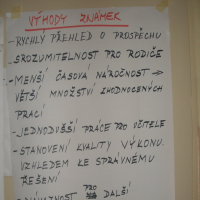 VÝHODY ZNÁMEK
- RYCHLÝ PŘEHLED O PROSPĚCHU
SROZUMITELNOST PRO RODIČE
- MENŠÍ ČASOVÁ NÁROČNOST →
VĚTŠÍ MNOŽSTVÍ ZHODNOCENÝCH
PRACÍ
- JEDNODUŠŠÍ PRÁCE PRO UČITELE
- STANOVENÍ KVALITY VÝKONU
VZHLEDEM KE SPRÁVNÉMU
ŘEŠENÍ
PRO DALŠÍ